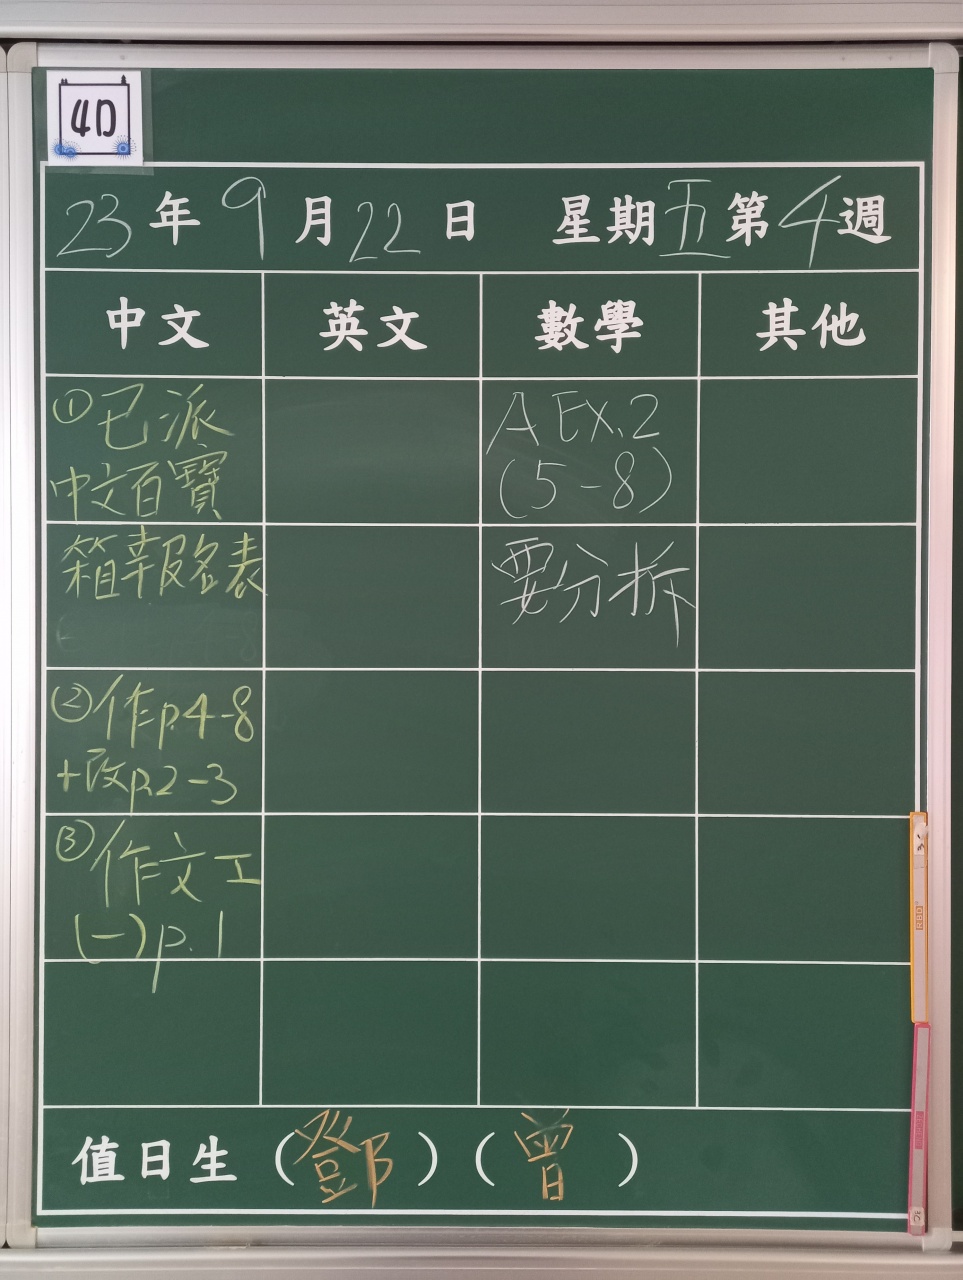 4D
23年9月22日 星期五第4週
中文 英文 數學 其他
①已派
中文百寶
箱報名表
②作p.4-8
+改p.2-3
③作文工
(一)p.1
A Ex.2
(5-8)
要分拆
值日生(鄧)(曾)